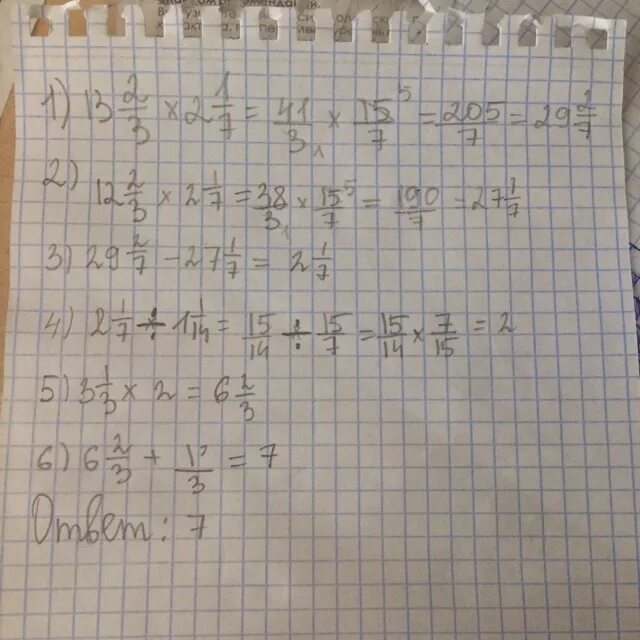 1) 13 2/3 × 2 1/7 = 41/3 × 15/7 5 = 205/7 = 29 2/7
2) 12 2/3 × 2 1/7 = 38/3 × 15/7 5 = 190/7 - 27 1/7
3) 29 2/7 - 27 1/7 = 2 1/7
4) 2 1/7 ÷ 1 1/14 = 15/14 ÷ 15/7 = 15/14 × 7/15 = 2
5) 3 1/3 × 2 = 6 2/3
6) 6 2/3 + 1/3 = 7
Ответ: 7